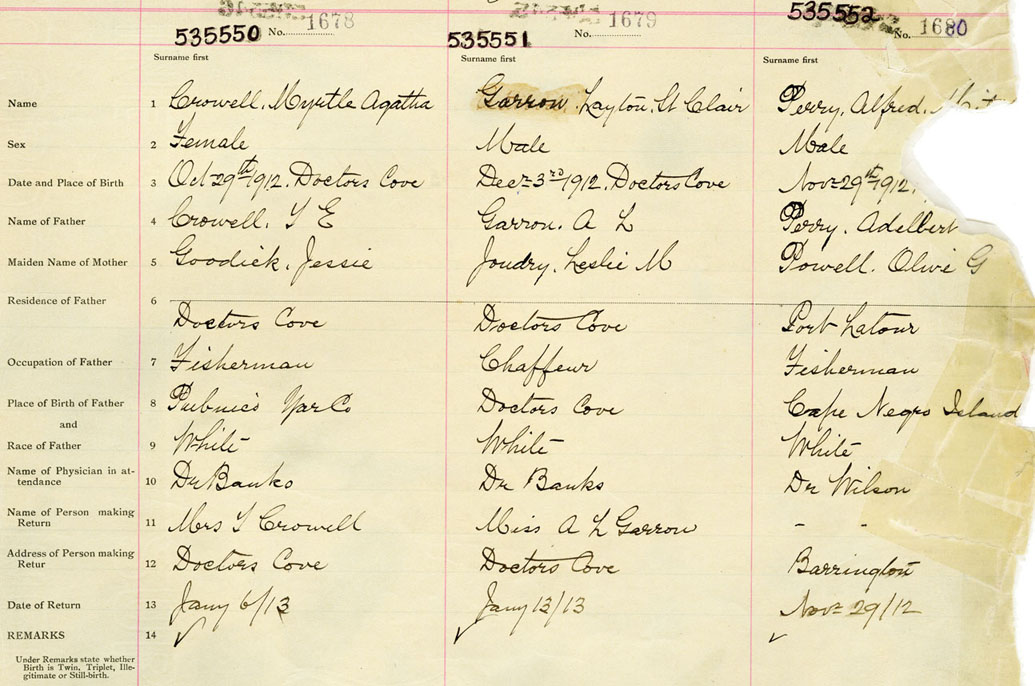 1678 1679 535552
535550 No. 535551 No. No. 1680
Surname first Surname first Surname first
Name 1 Crowell, Myrtle Agatha Garron, Layton, St Clair Perry, Alfred,
Sex 2 Female Male Male
Date and Place of Birth 3 Oct 29th 1912, Doctors Cove Decr 3rd 1912, Doctors Cove Novr 29th 1912,
Name of Father 4 Crowell, S E Garron, A L Perry, Adelbert
Maiden Name of Mother 5 Goodick, Jessie Joudry, Leslie M Powell, Olive G
Residence of Father 6
Doctors Cove Doctors Cove Port Latour
Occupation of Father 7 Fisherman Chaffeur Fisherman
Place of Birth of Father 8 Pubnico Yar Co Doctors Cove Cape Negro Island
and
Race of Father 9 White White White
Name of Physician in at-
tendance 10 Dr Banks Dr Banks Dr Wilson
Name of Person making
Return 11 Mrs S Crowell Miss A L Garron - -
Address of Person making
Retur 12 Doctors Cove Doctors Cove Barrington
Date of Return 13 Jany 6/13 Jany 13/13 Novr 29/12
REMARKS 14 ✓ ✓ ✓
Under Remarks state whether
Birth is Twin, Triplet, Ille-
gitimate or Still-birth.